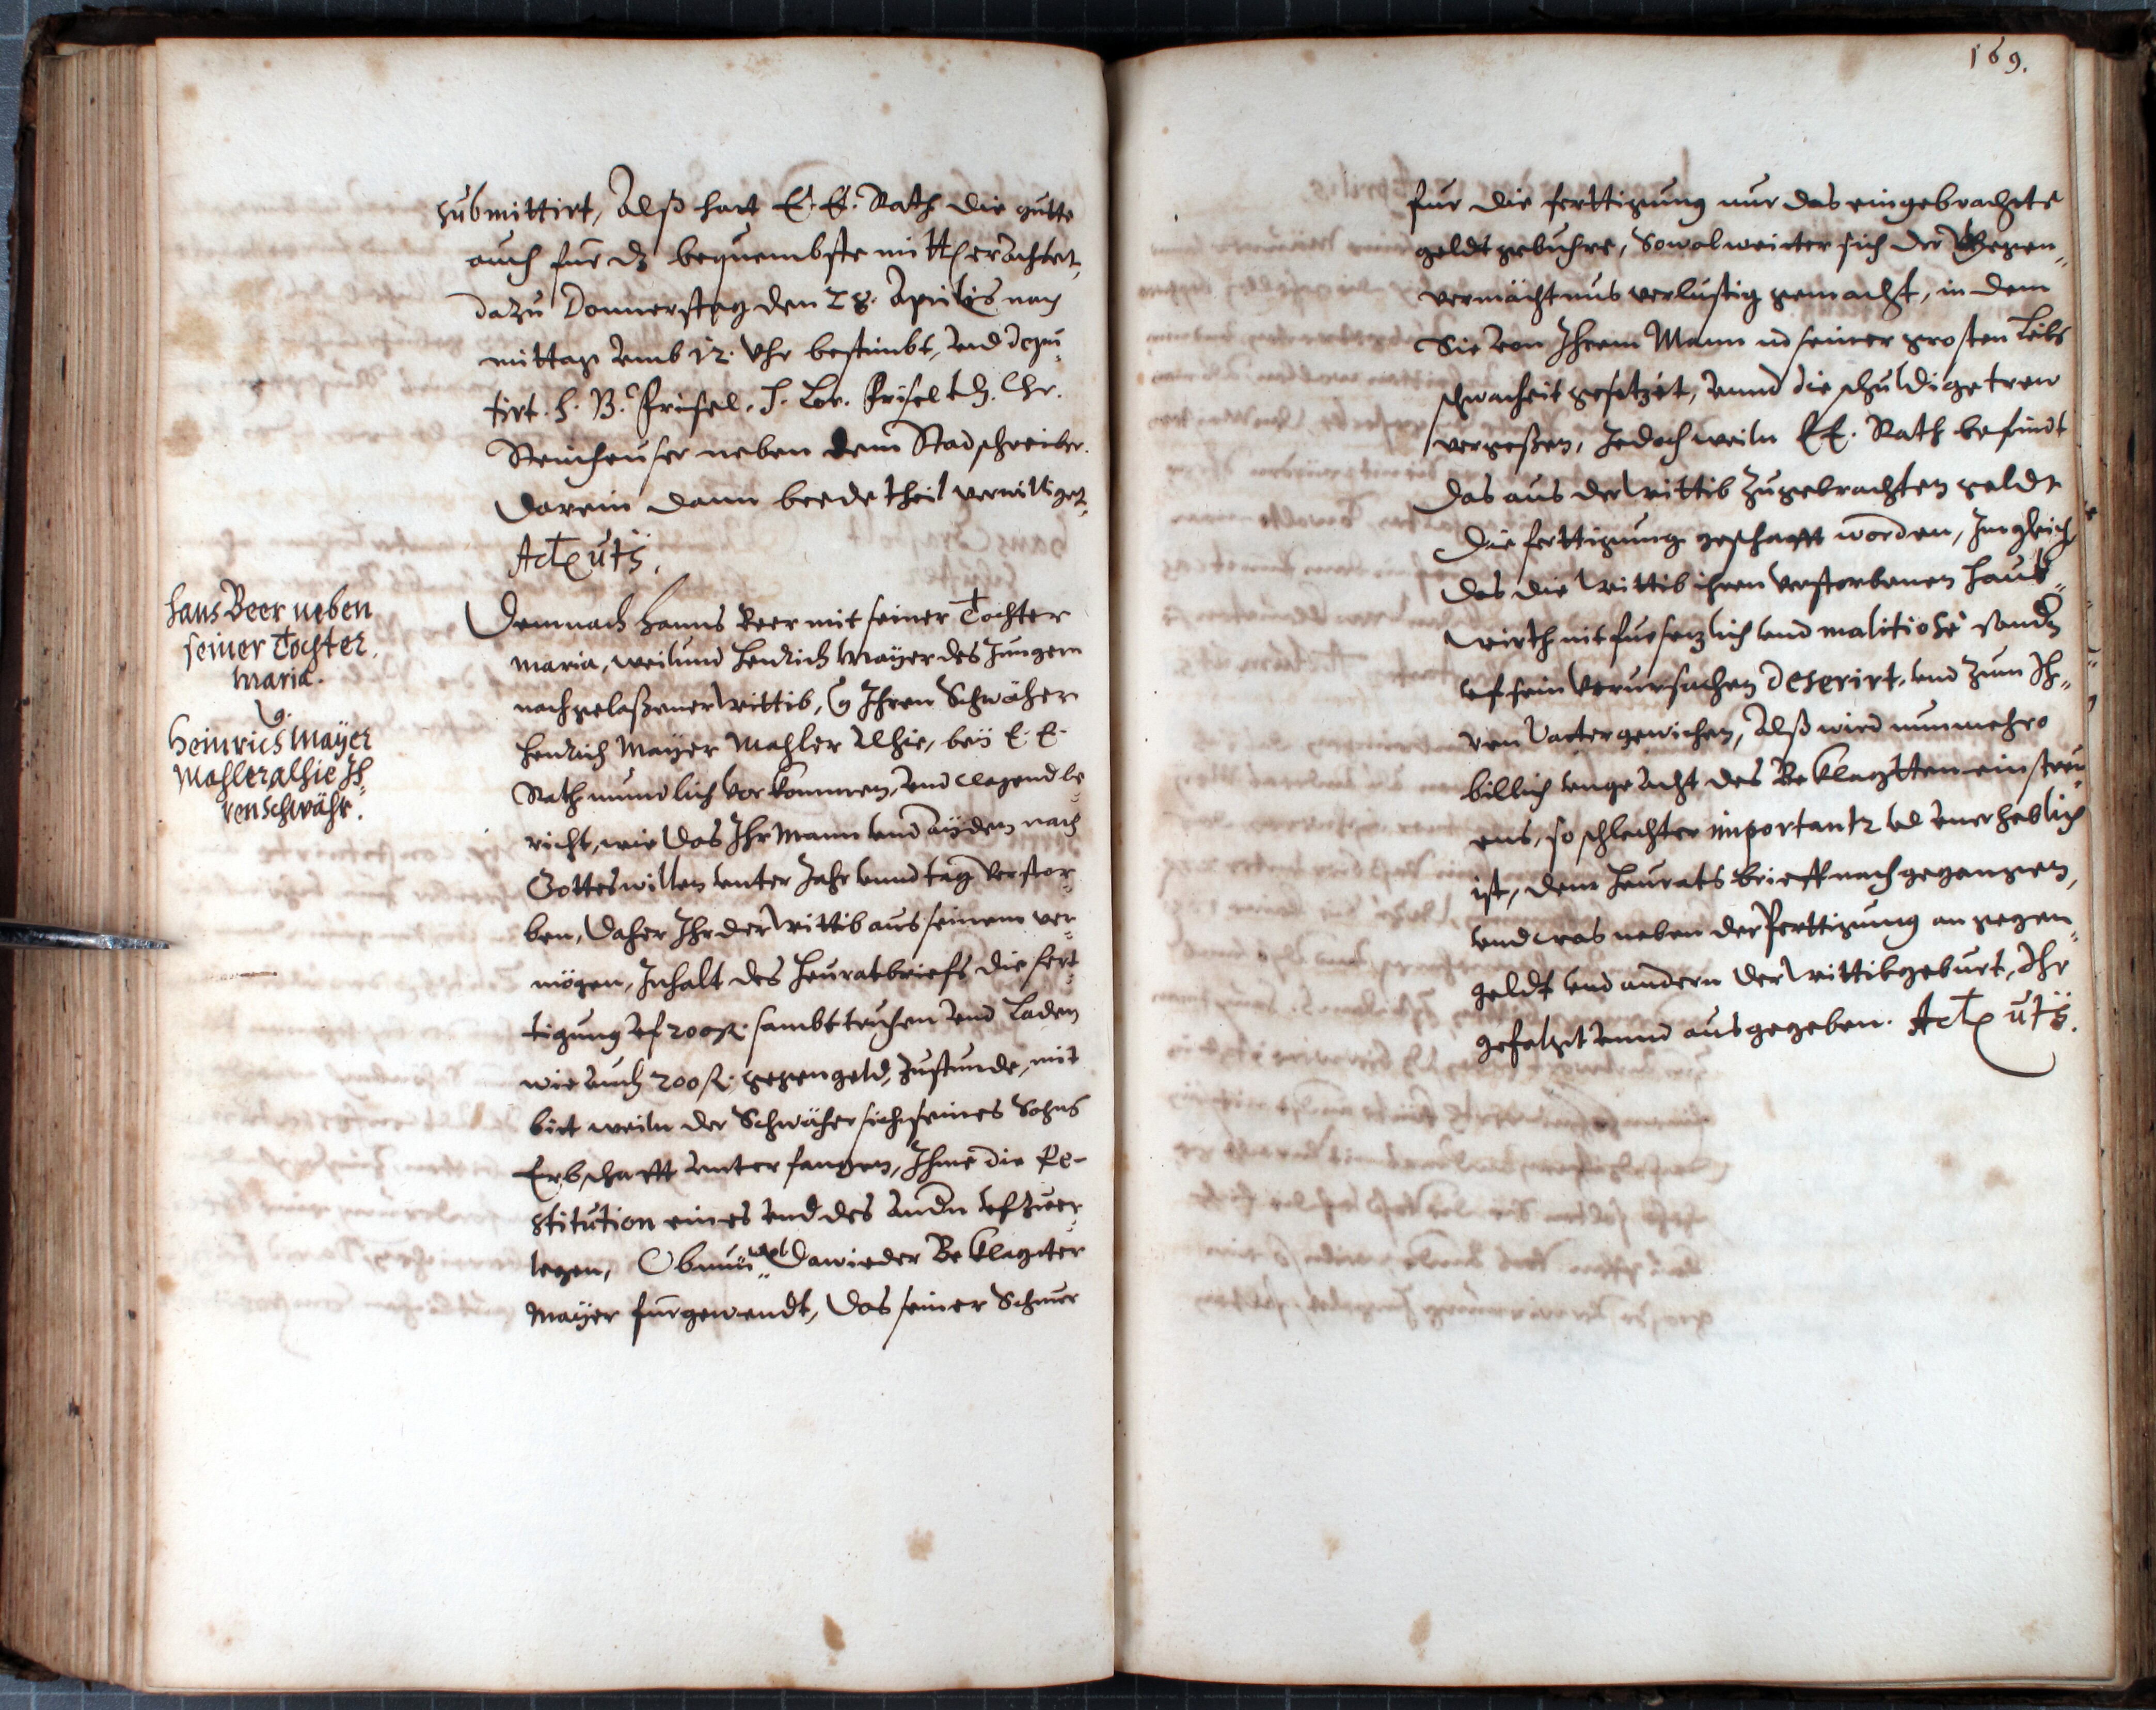 submittirt, Alß hatt E. E. Rath die gütte
auch für dz bequembste mittl erachtet,
dazu Donnerstag den 28. Aprilis nach
mittag umb 12. Uhr bestimbt, und depu-
tirt. H. B. Frisel. H. Lor. Frisel H. Chr.
neben dem Stadschreiber.
Darein dann beede theil verwilliget,
Act. uts.
Hans Beer neben
seiner Tochter
Maria.
Heinrich Mayer
Mahler alhie Ih-
ren Schwähr.
Demnach Hanns Beer mit seiner Tochter
Maria, weilund Henrich Mayer des Jungern
nachgelaßener Wittib, Ihren Schwäher
Henrich Mayer Mahler Alhie, bey E. E.
Rath mundlich vorkommen, und clagend be-
richt, wie das Ihr Mann und Ayden nach
Gottes willen unter Jahr unnd tag verstor-
ben, Daher Ihr der Wittib aus seinem ver-
mögen, Inhalt des Heuratbriefs die fert-
tigung uf 200 fl. sambt truhen und Laden
wie auch 200 fl. gegengeld, zustunde, mit
bitt weiln der Schwäher sich seines Sohns
Erbschafft unterfangen, Ihme die Re-
stitution eines und des andn ufzuer-
legen, Obnun wol dawieder Beklagter
Mayer furgewendt, das seiner Schnur
169.
fur die ferttigung nur das eingebrachte
geldt gebuhre, Sowol weiter sich der Gegen-
vermächtnus verlustig gemacht, in dem
Sie von Ihrem Mann in seiner grosten Leibs
schwacheit gesetzet, unnd die schuldige trew
vergeßen, Jedoch weiln E E. Rath befindt
das aus der Wittib zugebrachten geldt
die ferttigung geschafft worden, Imgleich
das die Wittib ihren verstorbenen Haus-
wirth nit fursezlich und malitiosè sondn
uf sein verursachen deserirt, und zum Ih-
ren Vatter gewichen, Alß wird nunmehro
billich ungeacht des Beklagtten einstreu-
ens, so schlechter importantz und unerheblich
ist, dem Heurats brieff nachgegangen,
und was neben der Ferttigung an gegen-
geldt und andern der Wittib geburt, Ihr
gefolgt unnd ausgegeben. Act. uts.